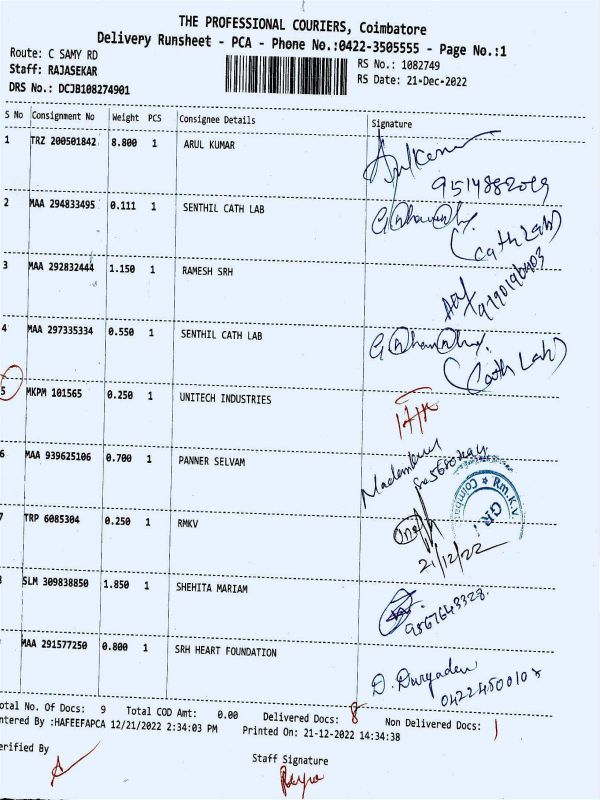 THE PROFESSIONAL COURIERS, Coimbatore
Delivery Runsheet - PCA - Phone No.:0422-3505555 - Page No.:1
Route: C SAMY RD
RS No.: 1082749
Staff: RAJASEKAR
RS Date: 21-Dec-2022
DRS No.: DCJB108274901
S No Consignment No Weight PCS Consignee Details Signature
1 TRZ 200501842 8.800 1 ARUL KUMAR
2 MAA 294833495 0.111 1 SENTHIL CATH LAB
(Cath Lab)
3 MAA 292832444 1.150 1 RAMESH SRH
4 MAA 297335334 0.550 1 SENTHIL CATH LAB
(Cath Lab)
5 MKPM 101565 0.250 1 UNITECH INDUSTRIES
6 MAA 939625106 0.700 1 PANNER SELVAM
7 TRP 6085304 0.250 1 RMKV
Rm.K.V.
21/12/22
SLM 309838850 1.850 1 SHEHITA MARIAM
MAA 291577250 0.800 1 SRH HEART FOUNDATION
otal No. Of Docs: 9 Total COD Amt: 0.00 Delivered Docs: 8 Non Delivered Docs: 1
ntered By :HAFEEFAPCA 12/21/2022 2:34:03 PM Printed On: 21-12-2022 14:34:38
erified By
Staff Signature